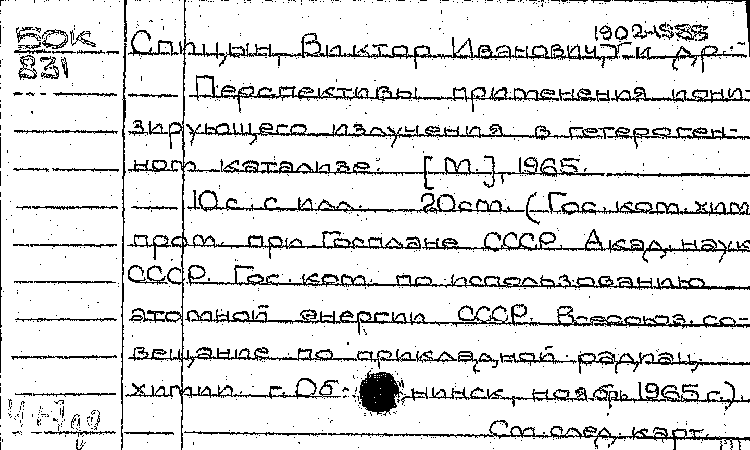 1902-1988
БОК Спицын, Виктор Иванович, и др.
831
Перспективы применения иони-
зирующего излучения в гетероген-
ном катализе. [М.], 1965.
10 с. с илл. 20 см. (Гос. ком. хим.
пром. при Госплане СССР. Акад. наук
СССР. Гос. ком. по использованию
атомной энергии СССР. Всесоюз. со-
вещание по прикладной радиац.
химии. г. Об- нинск, ноябр. 1965 г.).
См. след. карт.